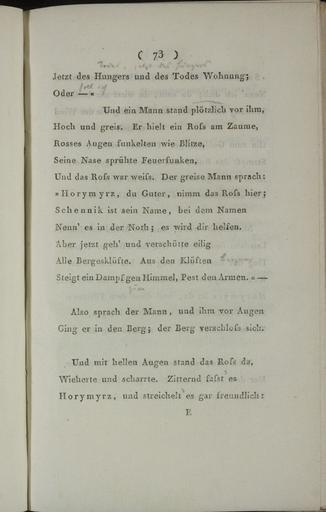 ( 73 )
Jetzt des Hungers und des Todes Wohnung;
Oder — «
Und ein Mann stand plötzlich vor ihm,
Hoch und greis. Er hielt ein Roſs am Zaume,
Rosses Augen funkelten wie Blitze,
Seine Nase sprühte Feuerfunken,
Und das Roſs war weiſs. Der greise Mann sprach:
»Horymyrz, du Guter, nimm das Roſs hier;
Schennik ist sein Name, bei dem Namen
Nenn' es in der Noth; es wird dir helfen.
Aber jetzt geh' und verschütte eilig
Alle Bergesklüfte. Aus den Klüften
Steigt ein Dampf gen Himmel, Pest den Armen. « —
Also sprach der Mann, und ihm vor Augen
Ging er in den Berg; der Berg verschloſs sich.
Und mit hellen Augen stand das Roſs da,
Wieherte und scharrte. Zitternd faſst es
Horymyrz, und streichelt es gar freundlich:
E